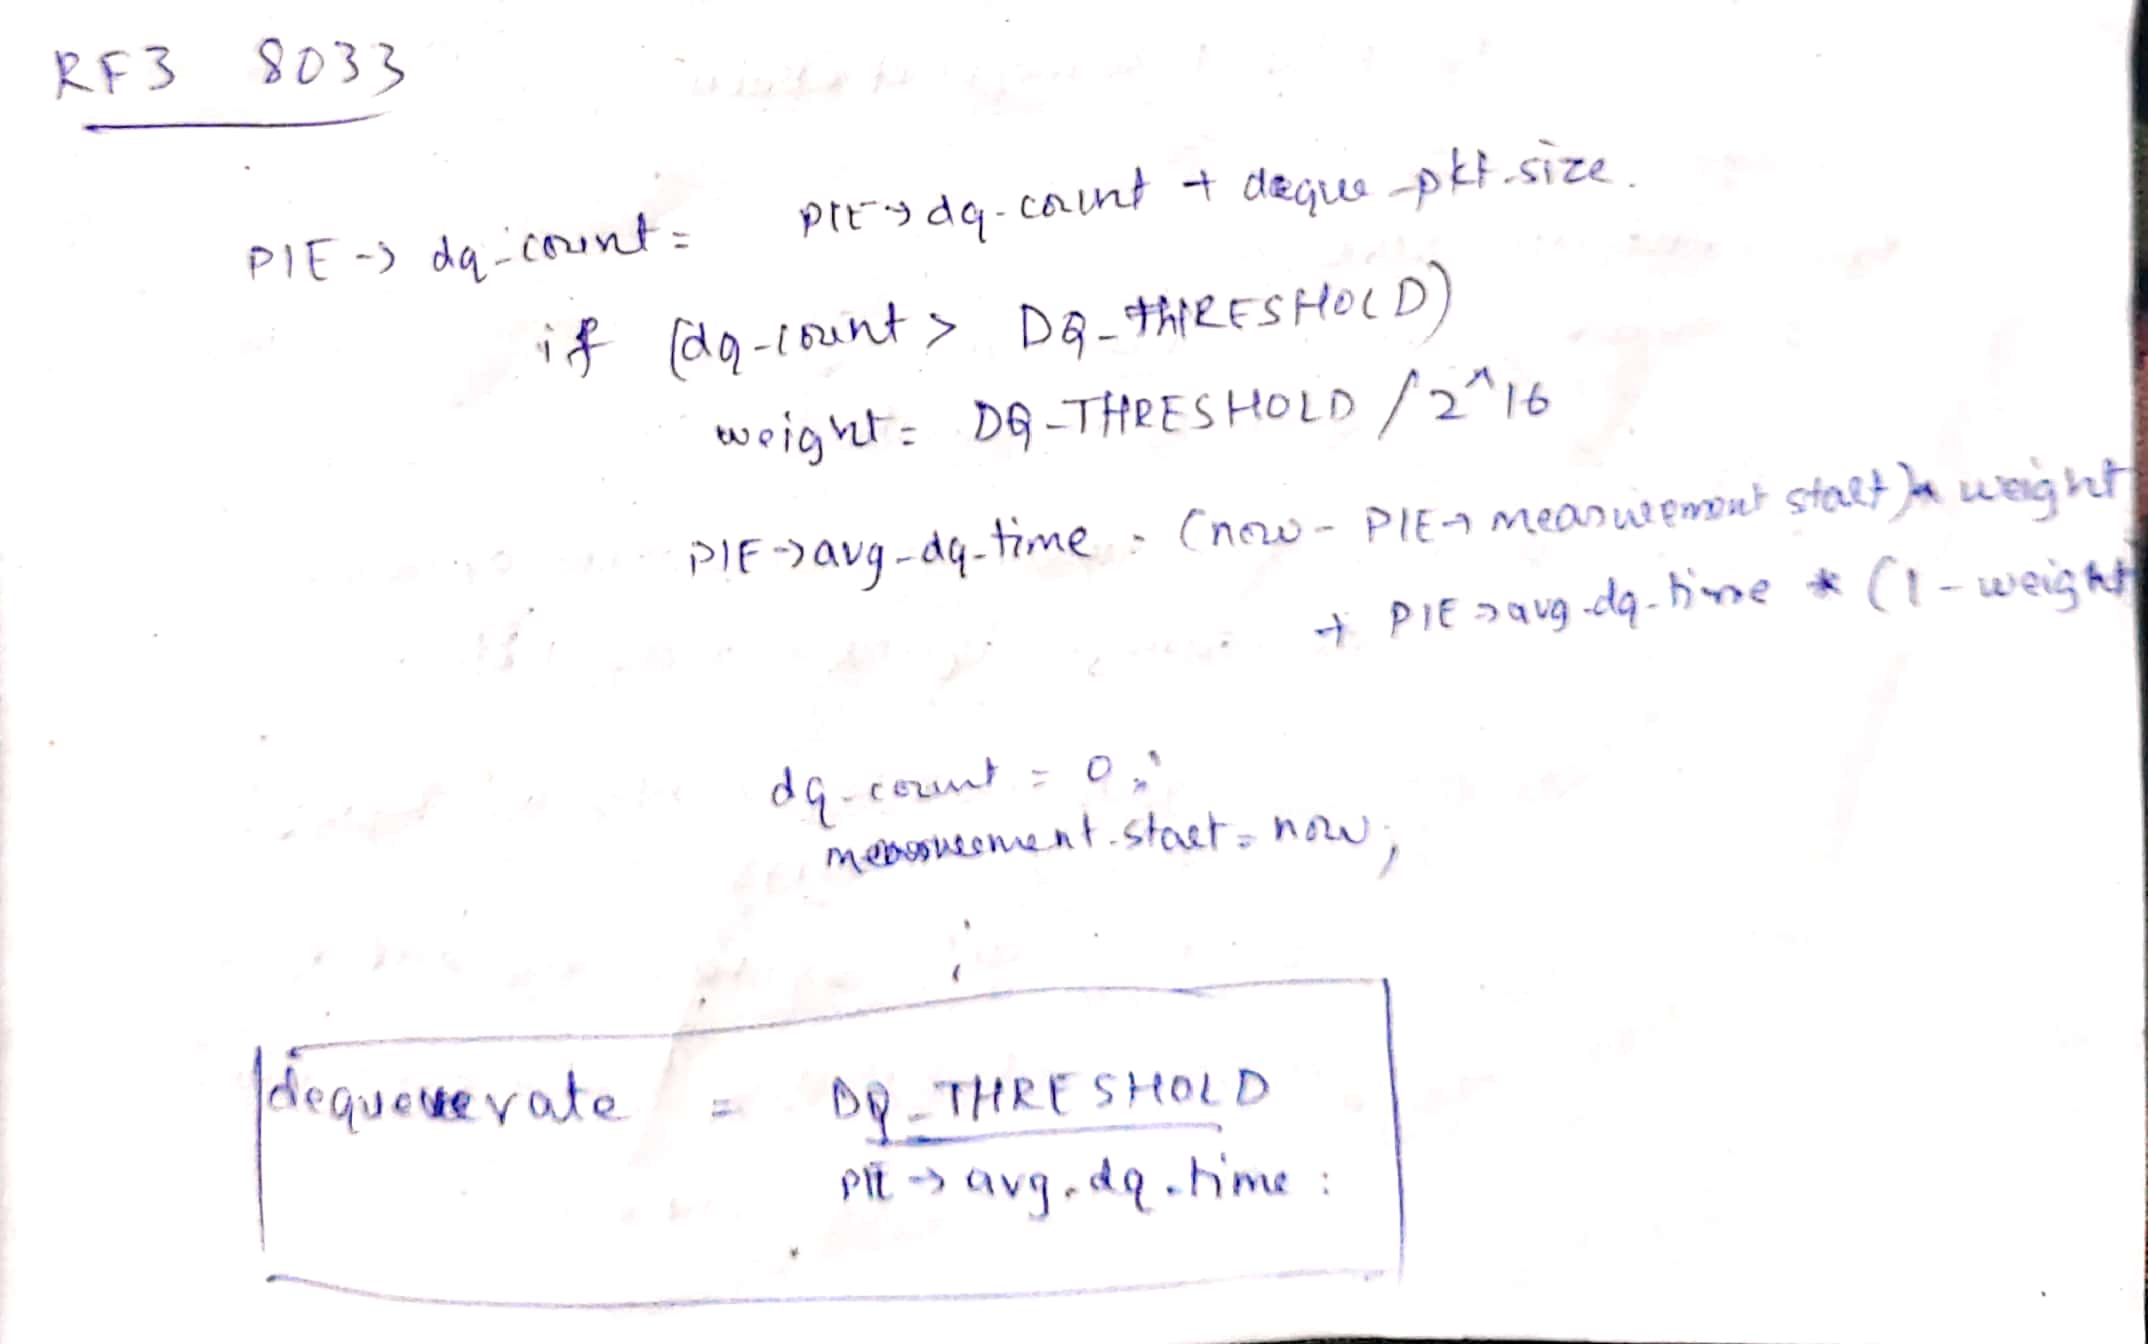 RF3 8033
PIE -> dq-count = PIE -> dq-count + deque-pkt-size.
if (dq-count > DQ-THRESHOLD)
weight = DQ-THRESHOLD / 2^16
PIE -> avg-dq-time = (now - PIE -> measurement start) * weight
+ PIE -> avg-dq-time * (1 - weight
dq-count = 0;
measurement-start = now;
dequeue rate = DQ-THRESHOLD
PIE -> avg-dq-time :